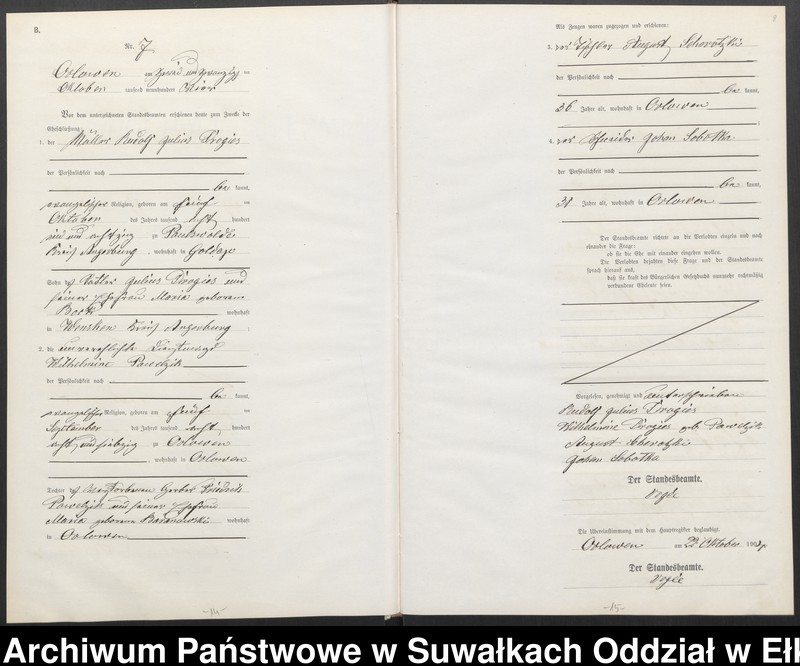 B.
Nr. 7
Orlowen am zwei und zwanzigsten
Oktober tausend neunhundert vier
Vor dem unterzeichneten Standesbeamten erschienen heute zum Zwecke der
Eheschließung:
1. der Müller Rudolf Julius Drogies
der Persönlichkeit nach
be kannt,
evangelischer Religion, geboren am fünf ten
Oktober des Jahres tausend acht hundert
und achtzig zu
Kreis Angerburg, wohnhaft in Goldap
Sohn des Julius Drogies und
seiner Ehefrau Maria geborenen
Bock wohnhaft
in Wensken Kreis Angerburg;
2. die unverehelichte Dienstmagd
Wilhelmine Pawelzik
der Persönlichkeit nach
be kannt,
evangelischer Religion, geboren am fünf ten
September des Jahres tausend acht hundert
acht und siebzig zu Orlowen
, wohnhaft in Orlowen
Tochter des verstorbenen Friedrich
Pawelzik und seiner Ehefrau
Maria geborenen Baranowski wohnhaft
in Orlowen
-14-
9
Als Zeugen waren zugezogen und erschienen:
3. der Tischler August
der Persönlichkeit nach
be kannt,
36 Jahre alt, wohnhaft in Orlowen;
4. der Schneider Johan Sobottka
der Persönlichkeit nach
be kannt,
31 Jahre alt, wohnhaft in Orlowen
Der Standesbeamte richtete an die Verlobten einzeln und nach
einander die Frage:
ob sie die Ehe mit einander eingehen wollen.
Die Verlobten bejahten diese Frage und der Standesbeamte
sprach hierauf aus,
daß sie kraft des Bürgerlichen Gesetzbuchs nunmehr rechtmäßig
verbundene Eheleute seien.
Vorgelesen, genehmigt und unterschrieben
Rudolf Julius Drogies
Wilhelmine Drogies geb. Pawelzik
August
Johan Sobottka
Der Standesbeamte.
Die Übereinstimmung mit dem Hauptregister beglaubigt.
Orlowen am 22. Oktober 1904
Der Standesbeamte.
-15-
Archiwum Państwowe w Suwałkach Oddział w Ełk